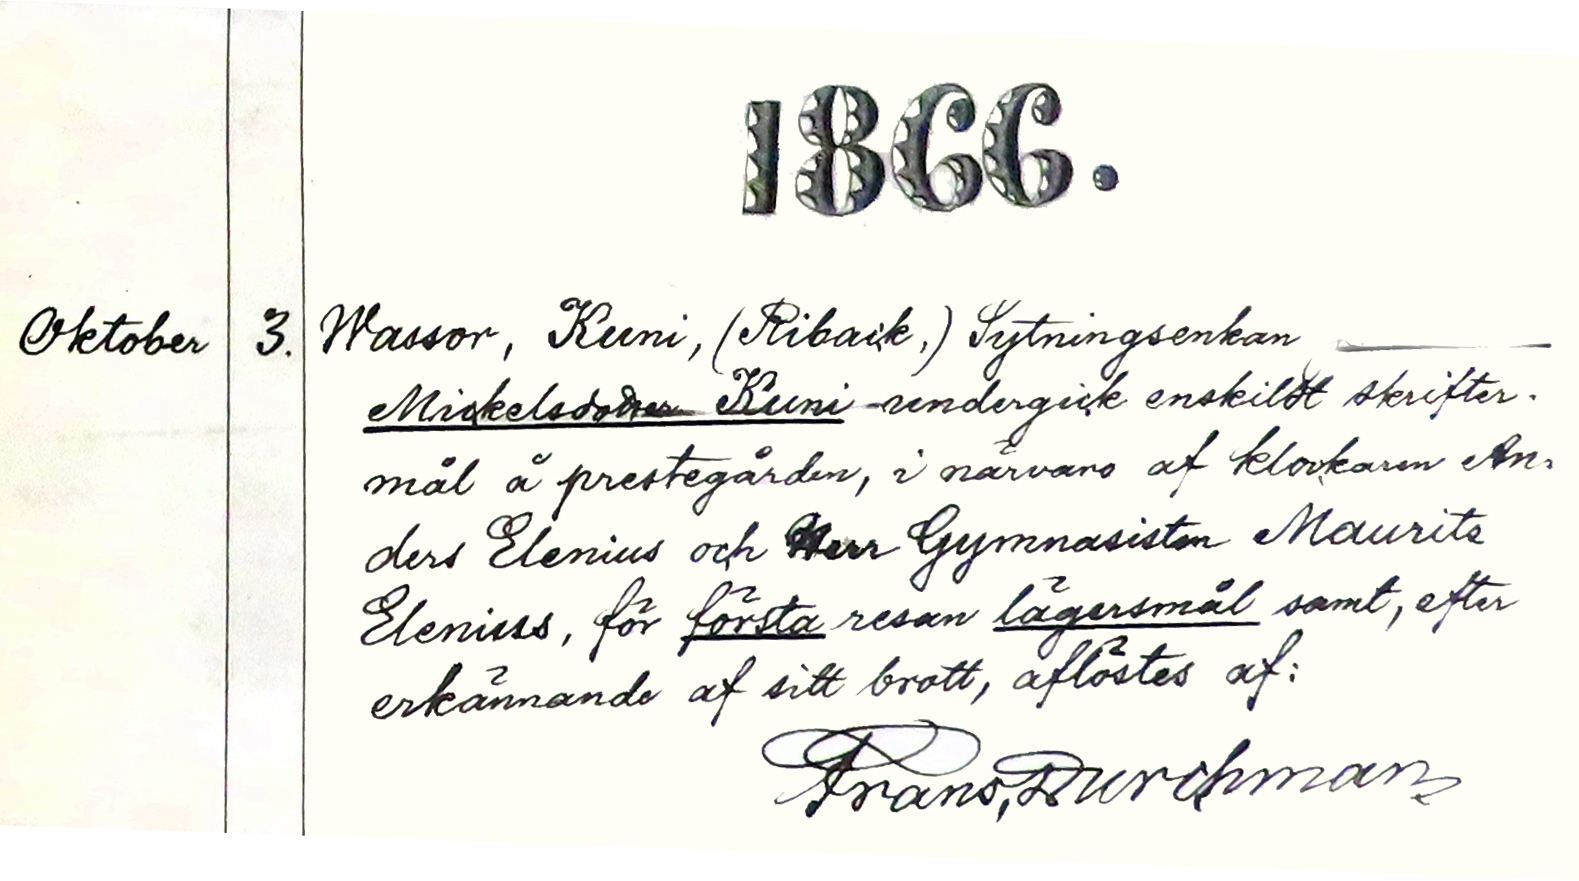 1866.
Oktober 3. Wassor, Kuni, (Riback,) Sytningsenkan
Mickelsdotter Kuni undergick enskildt skrifter-
mål å prestegården, i närvaro af klockaren An-
ders Elenius och Herr Gymnasisten Maurits
Elenius, för första resan lägersmål samt, efter
erkännande af sitt brott, aflöstes af:
Frans Durchman